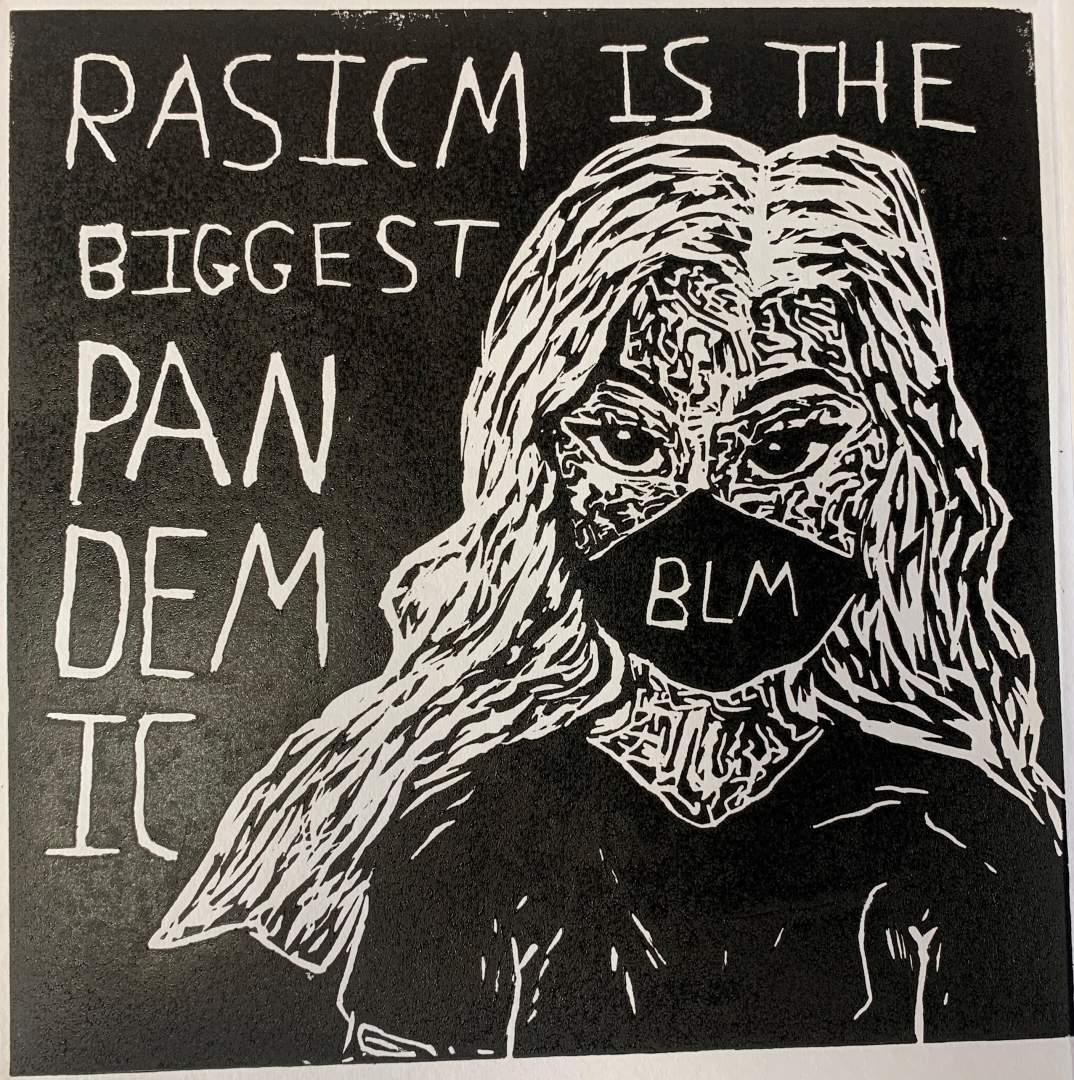 RASICM IS THE
BIGGEST
PAN
DEM
IC
BLM